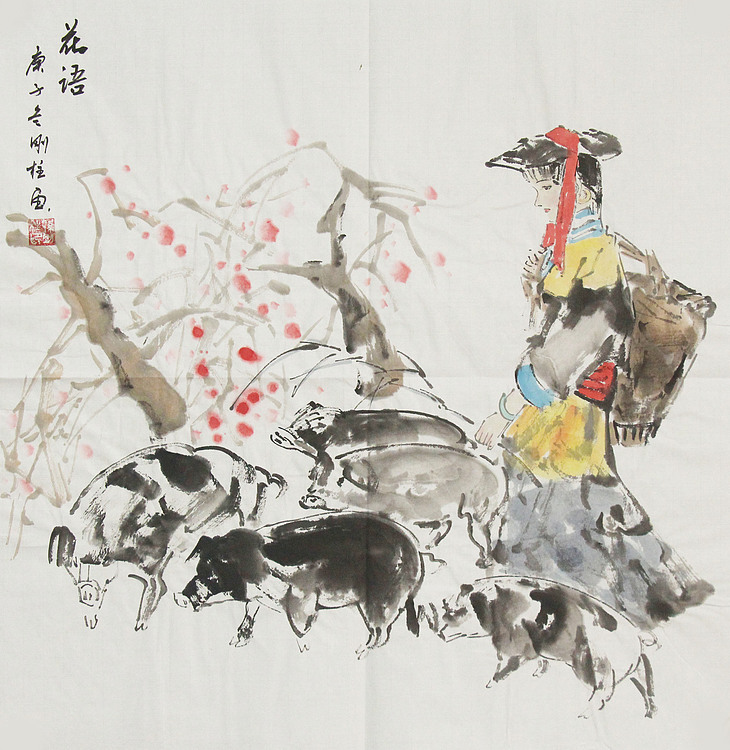 花语
庚子冬刚柱画